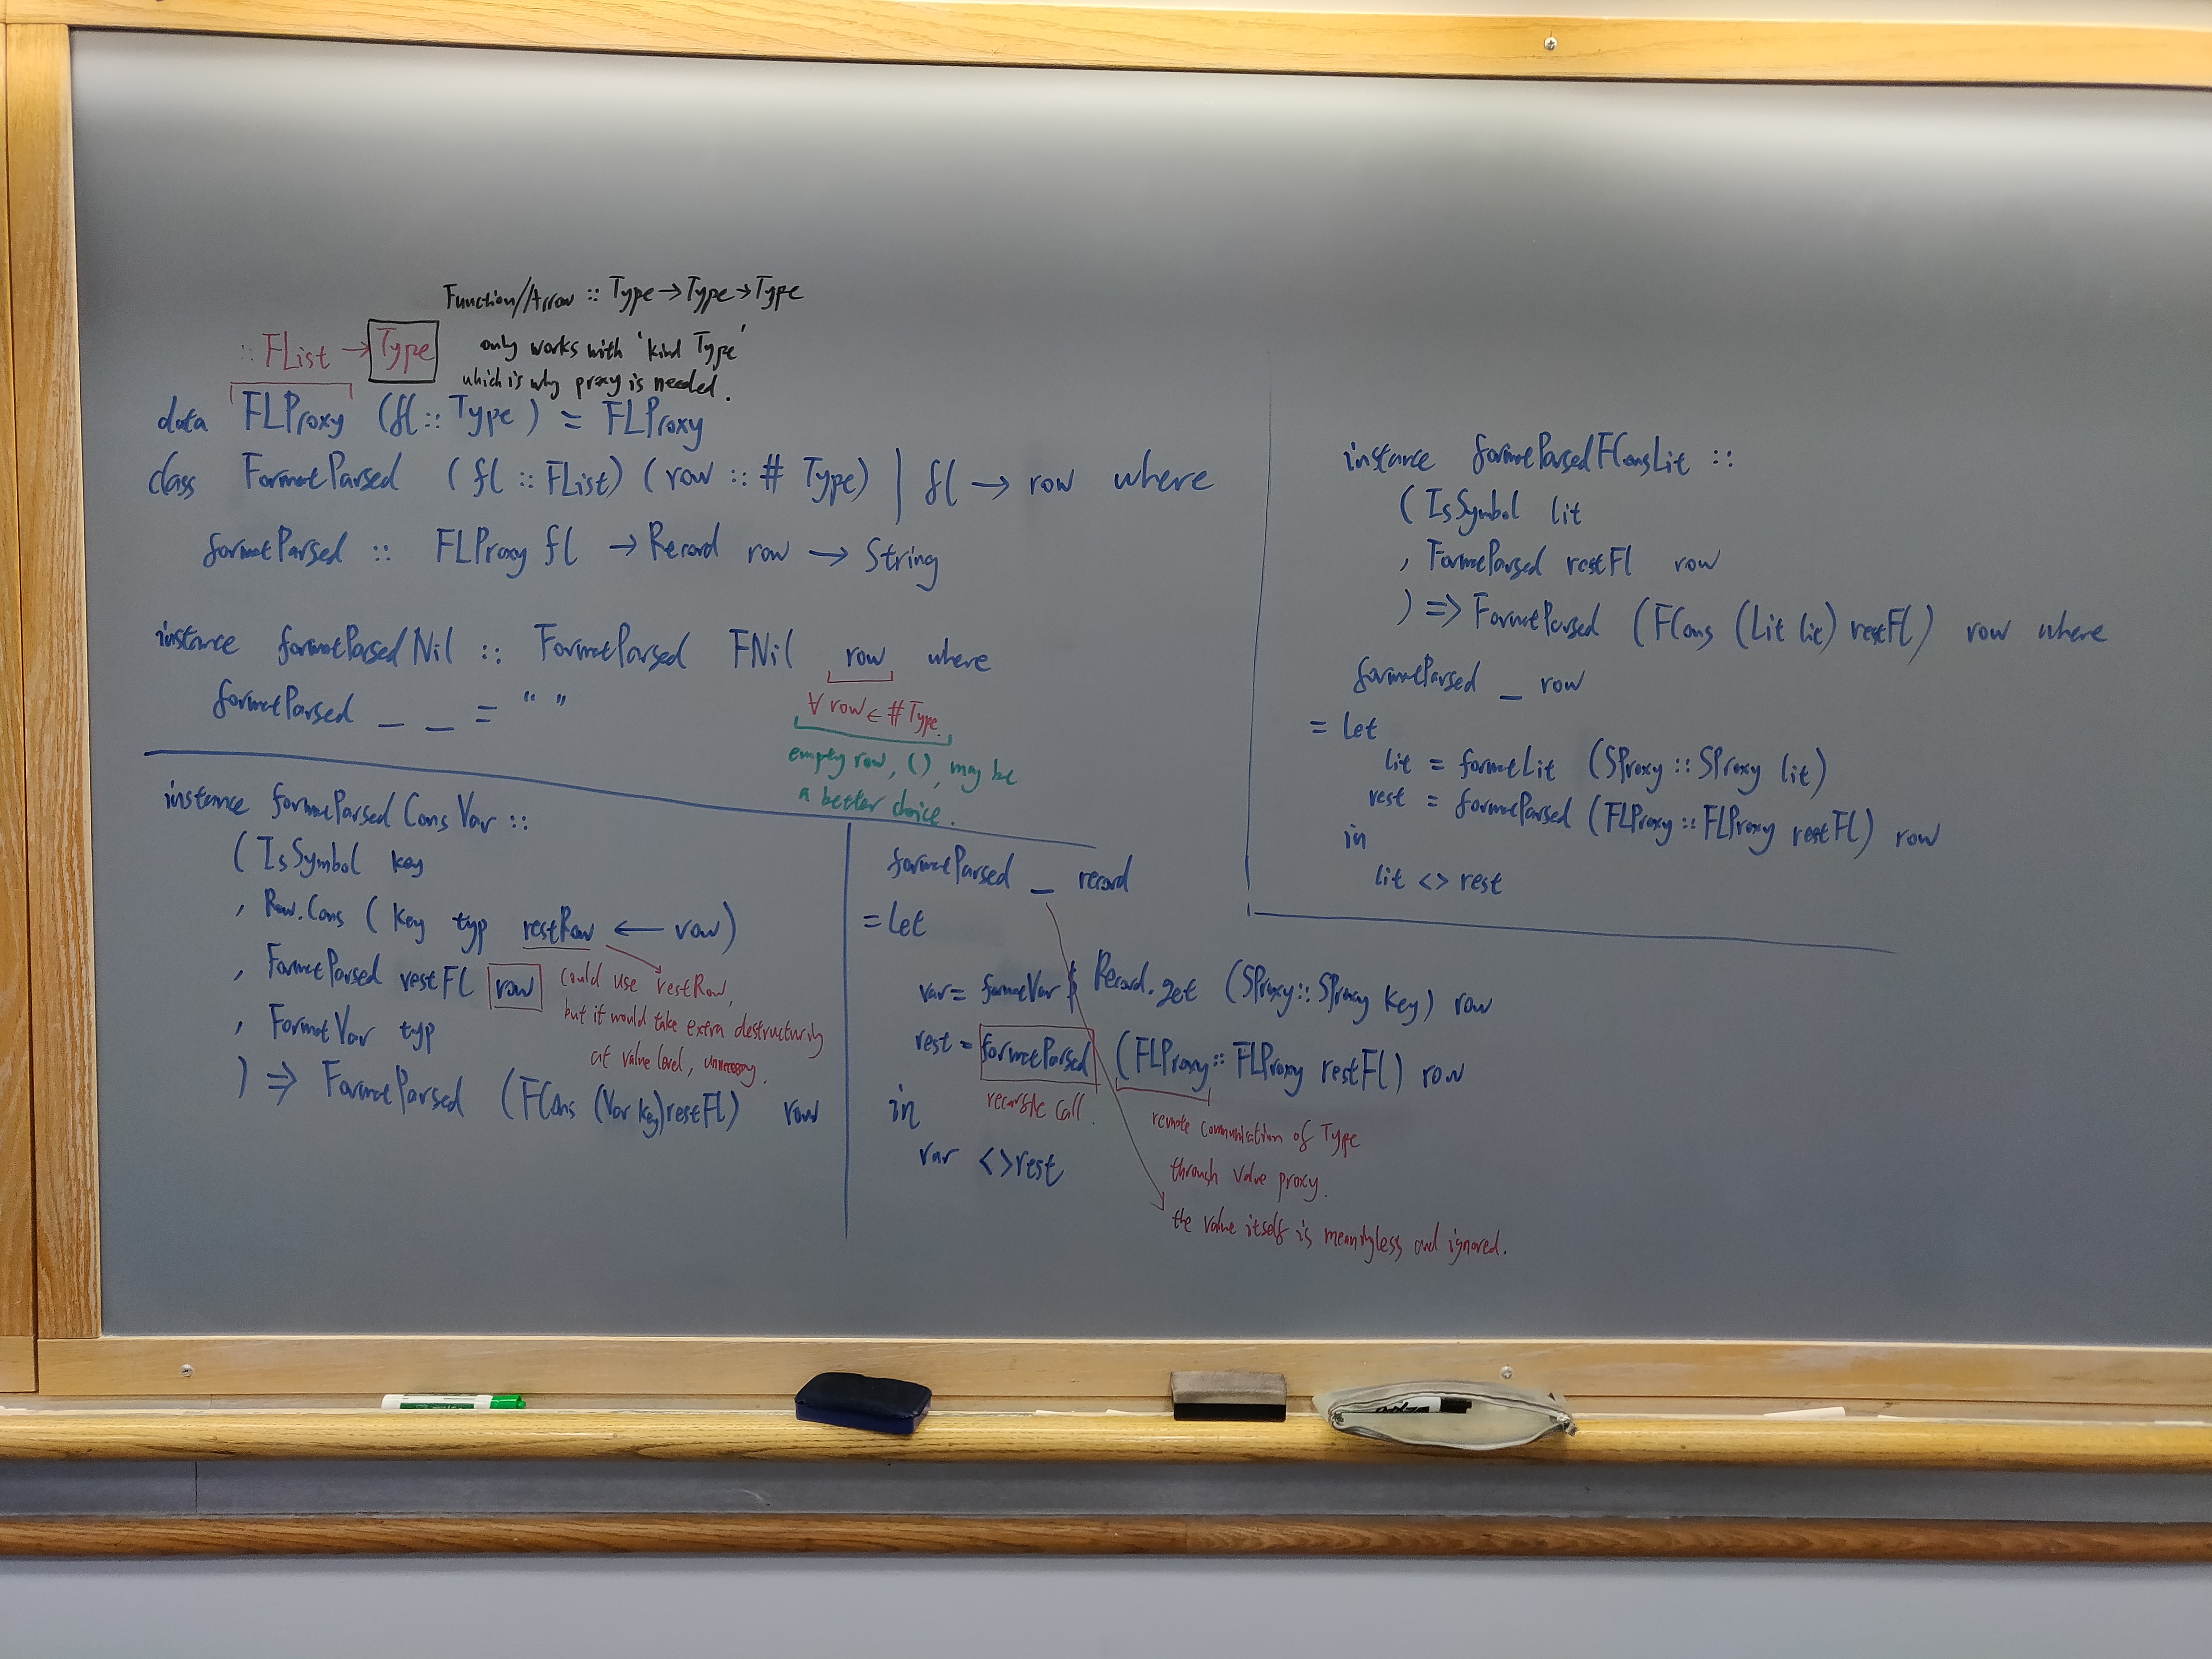 Function//Arrow :: Type → Type → Type
only works with 'kind Type'
which is why proxy is needed.
:: FList → Type
data FLProxy (fl :: Type) = FLProxy
class FormatParsed (fl :: FList) (row :: # Type) | fl → row where
formatParsed :: FLProxy fl → Record row → String
instance formatParsedNil :: FormatParsed FNil row where
formatParsed _ _ = " "
∀ row ∈ # Type.
empty row, (), may be
a better choice.
instance formatParsedConsVar ::
(IsSymbol key
, Row.Cons (key typ restRow ← row)
, FormatParsed restFl row
could use restRow,
but it would take extra destructuring
at value level, unnecessary.
, FormatVar typ
) => FormatParsed (FCons (Var key) restFL) row
formatParsed _ record
= let
var = formatVar $ Record.get (SProxy :: SProxy key) row
rest = formatParsed (FLProxy :: FLProxy restFl) row
recursive call.
remote communication of Type
through value proxy.
the value itself is meaningless and ignored.
in
var <> rest
instance formatParsedFConsLit ::
(IsSymbol lit
, FormatParsed restFl row
) => FormatParsed (FCons (Lit lit) restFl) row where
formatParsed _ row
= let
lit = formatLit (SProxy :: SProxy lit)
rest = formatParsed (FLProxy :: FLProxy restFl) row
in
lit <> rest